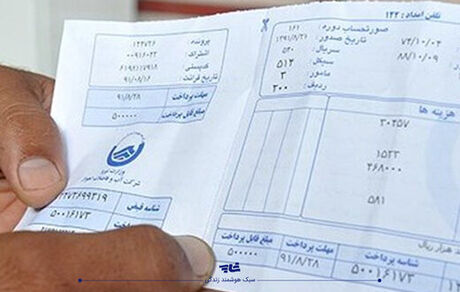 تلفن امداد: ۱۲۲
صورتحساب دوره: ۱۶۱
تاریخ صدور: ۱۳۹۱/۸/۲۱
سریال: ۵۳۰
سیکل: ۵۱۲
مامور ۳
ردیف ۲۰۰
۷۴/۱۰/۰۴
۸۸/۱۰/۰۹
پرونده:
اشتراک:
کدپستی:
تاریخ قرائت: ۹۱/۰۸/۱۶
مهلت پرداخت ۹۱/۸/۲۸
مبلغ قابل پرداخت ۵۰۰۰۰۰
وزارت نیرو
شرکت آب و فاضلاب اهواز
شناسه قبض
شناسه پرداخت ۵۰۰۱۶۱۷۳
هزینه ها
۳۰۴۵۷
۱۵۳۳
۴۶۸۰۰۰
۵۸۱
هزار ریال
شناسه پرداخت ۵۰۰۱۶۱۷۳
مهلت پرداخت ۹۱/۸/۲۸
مبلغ قابل پرداخت ۵۰۰۰۰۰
سبک هوشمند زندگی